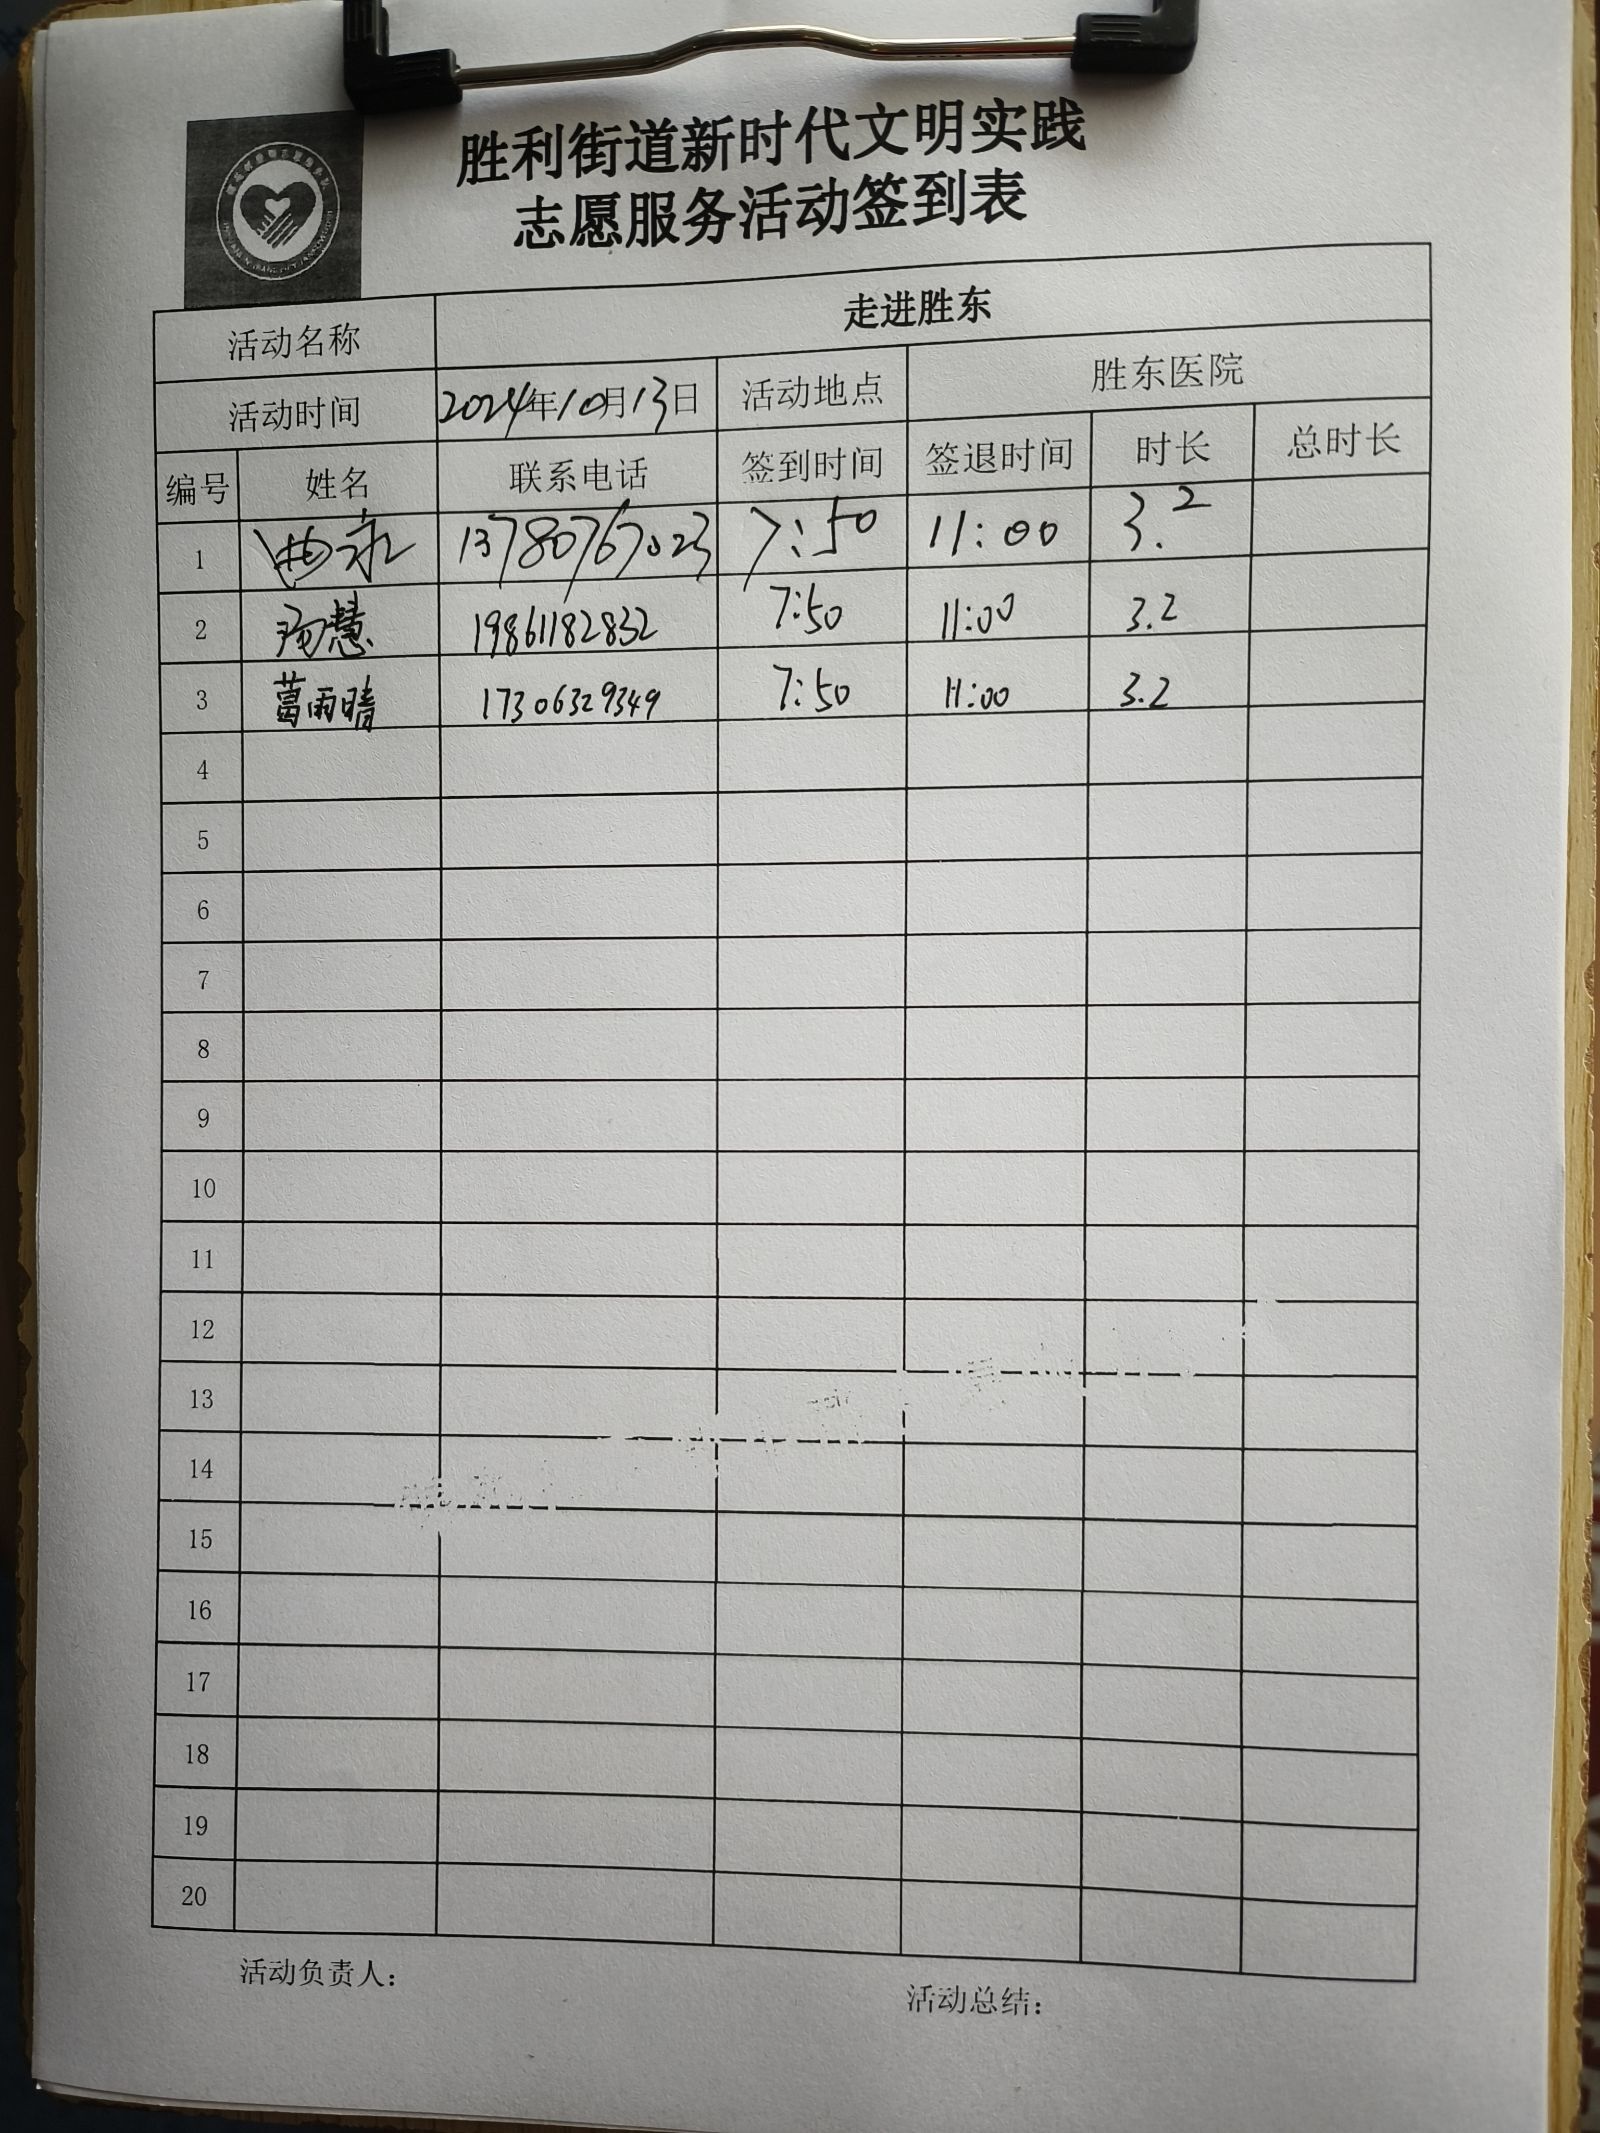 胜利街道新时代文明实践
志愿服务活动签到表
活动名称 走进胜东
活动时间 2024年10月13日 活动地点 胜东医院
编号 姓名 联系电话 签到时间 签退时间 时长 总时长
1 曲永 13780767023 7:50 11:00 3.2
2 慧 19861182832 7:50 11:00 3.2
3 葛雨晴 17306329349 7:50 11:00 3.2
4
5
6
7
8
9
10
11
12
13
14
15
16
17
18
19
20
活动负责人： 活动总结：